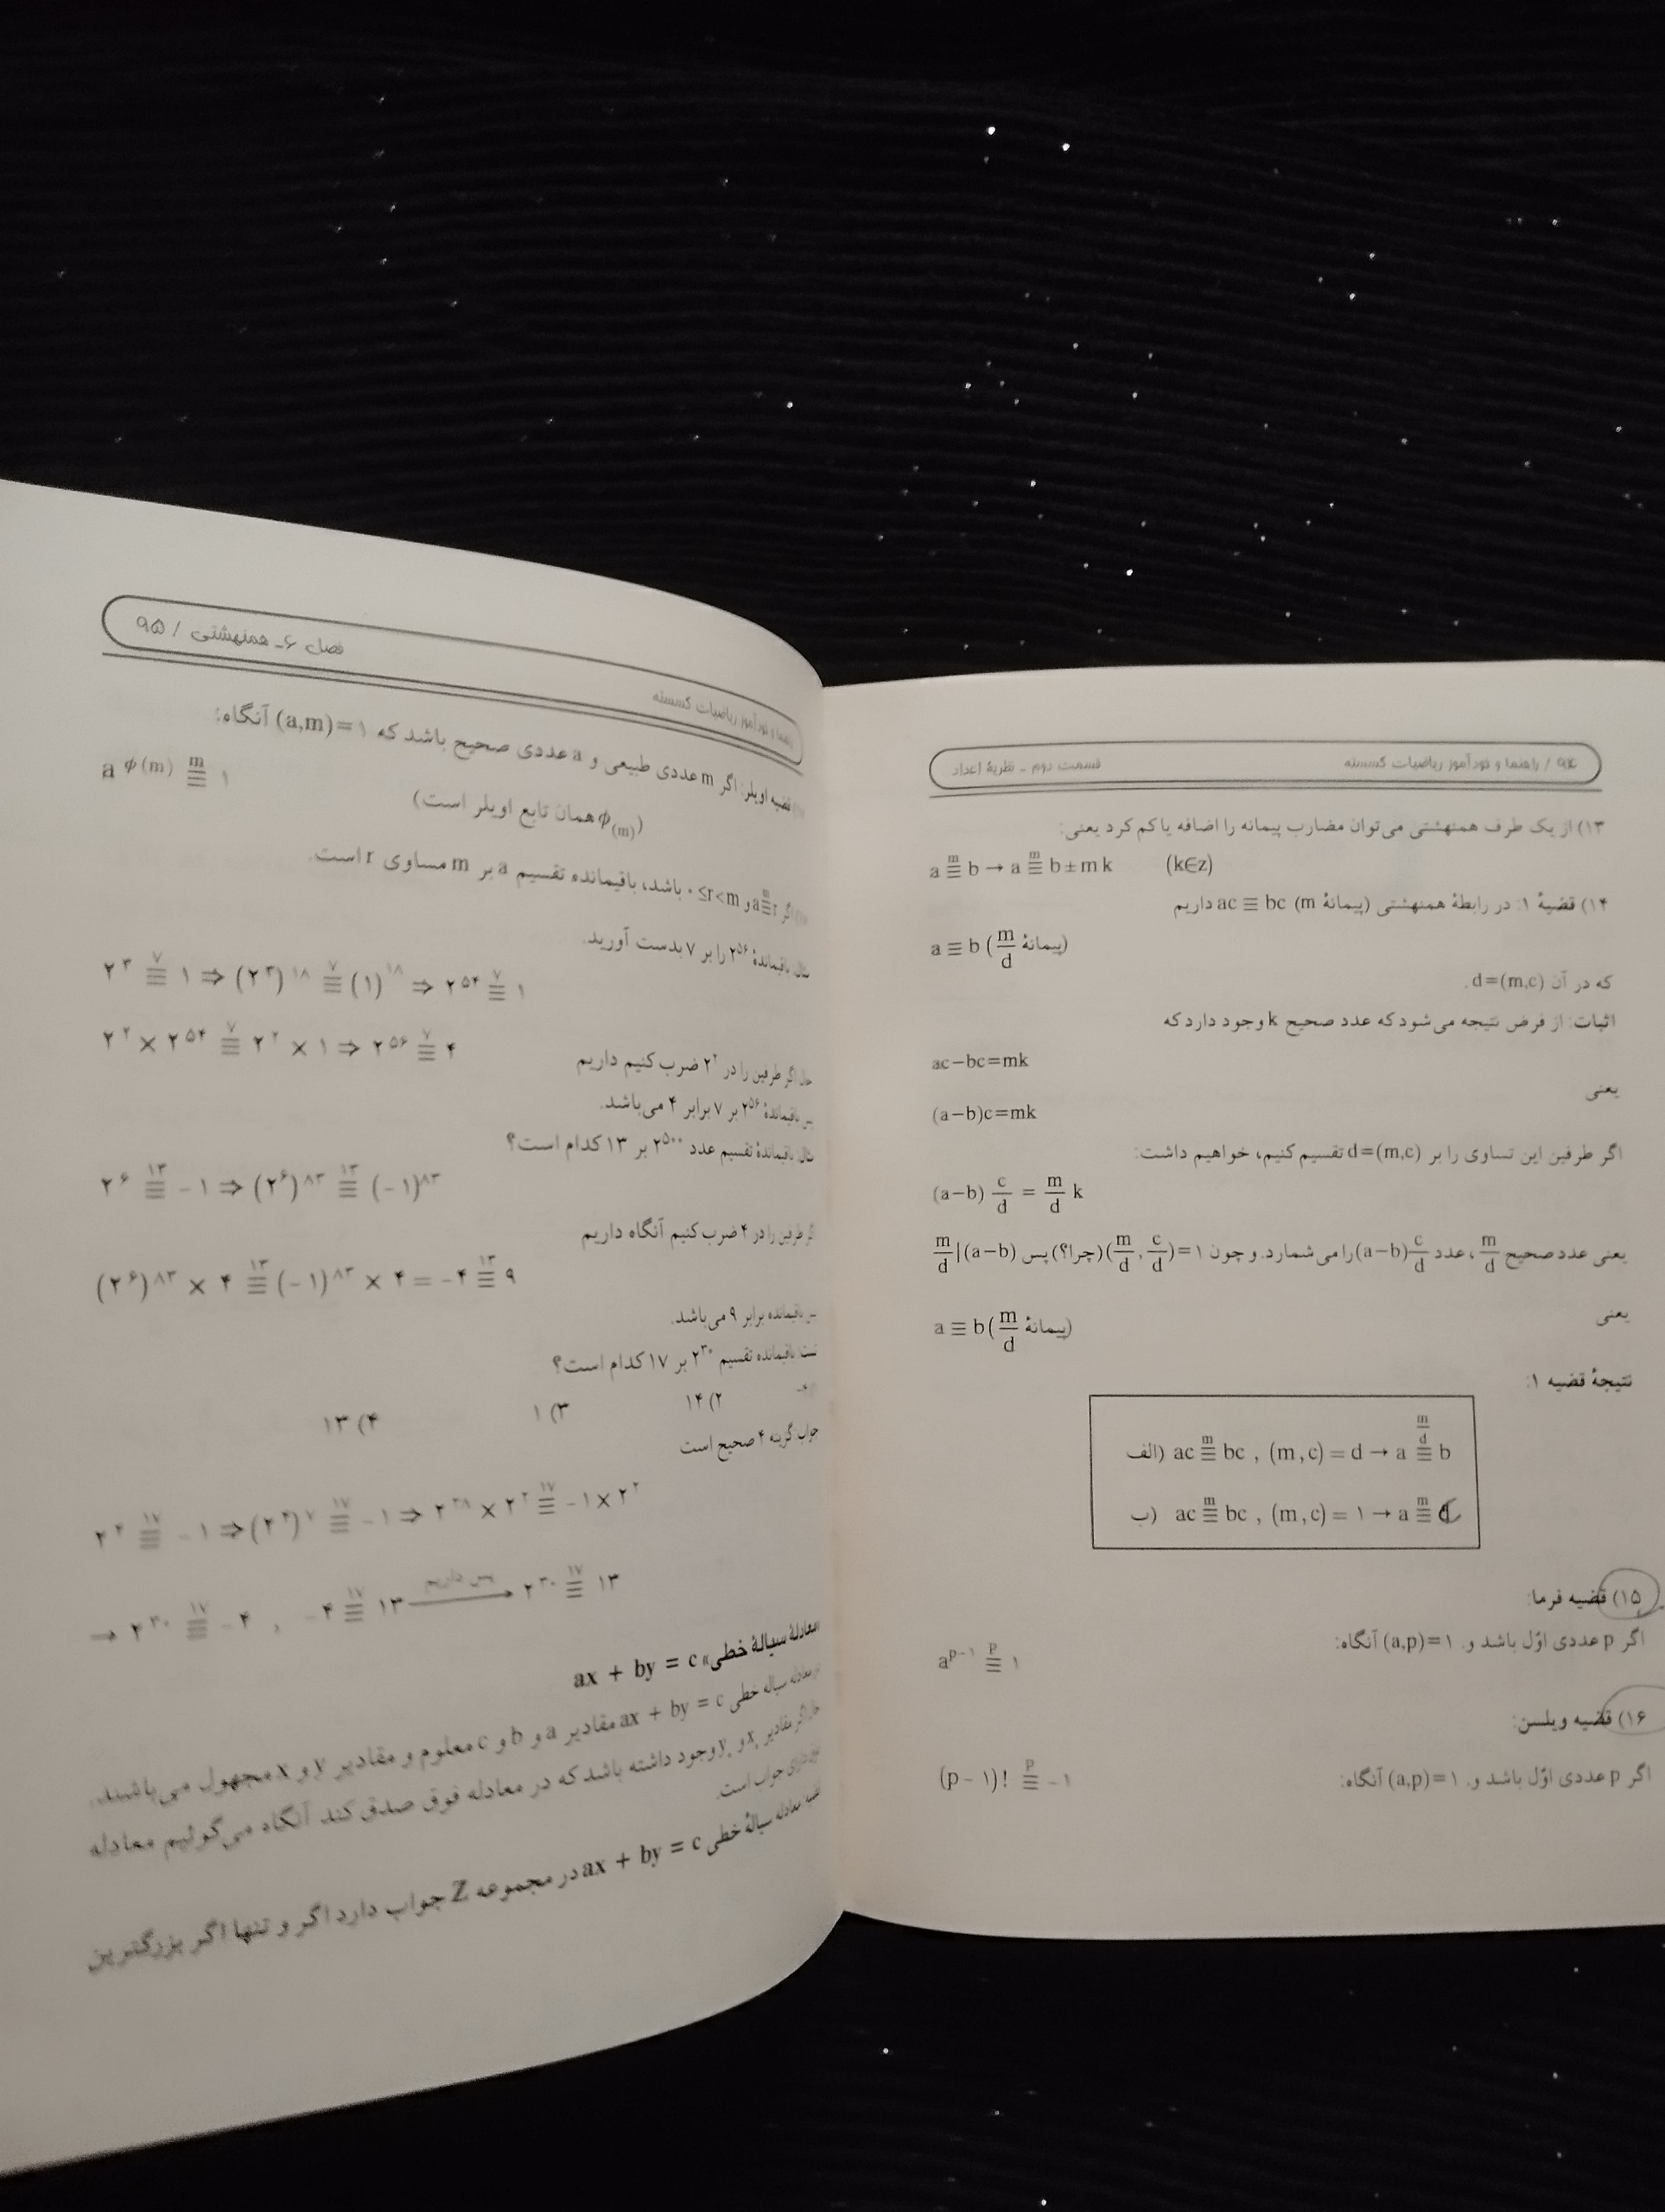 ۹۴ / راهنما و خودآموز ریاضیات گسسته قسمت دوم ـ نظریهٔ اعداد
۱۳) از یک طرف همنهشتی می‌توان مضارب پیمانه را اضافه یا کم کرد یعنی:
a ≡^m b → a ≡^m b ± m k (k∈z)
۱۴) قضیهٔ ۱: در رابطهٔ همنهشتی (پیمانهٔ m) ac ≡ bc داریم
a ≡ b (پیمانهٔ m/d)
که در آن d=(m,c).
اثبات: از فرض نتیجه می‌شود که عدد صحیح k وجود دارد که
ac−bc=mk
یعنی
(a−b)c=mk
اگر طرفین این تساوی را بر d=(m,c) تقسیم کنیم، خواهیم داشت:
(a−b) c/d = m/d k
یعنی عدد صحیح m/d، عدد (a−b)c/d را می شمارد. و چون (m/d , c/d)=۱ (چرا؟) پس m/d|(a−b)
یعنی
a ≡ b(پیمانهٔ m/d)
نتیجهٔ قضیه ۱:
الف) ac ≡^m bc , (m,c) = d → a ≡^(m/d) b
ب) ac ≡^m bc , (m,c) = ۱ → a ≡^m
۱۵) قضیه فرما:
اگر p عددی اوّل باشد و. (a,p)=۱ آنگاه:
a^(p−۱) ≡^p ۱
۱۶) قضیه ویلسن:
اگر p عددی اوّل باشد و. (a,p)=۱ آنگاه:
(p − ۱)! ≡^p −۱
فصل ۶ـ همنهشتی / ۹۵
ریاضیات گسسته
قضیه اویلر: اگر m عددی طبیعی و a عددی صحیح باشد که (a,m)=۱ آنگاه:
a^φ(m) ≡^m ۱
(φ(m) همان تابع اویلر است)
اگر a≡^m r و ۰≤r<m باشد، باقیمانده تقسیم a بر m مساوی r است.
مثال: باقیماندهٔ ۲^۵۶ را بر ۷ بدست آورید.
۲^۳ ≡^۷ ۱ ⇒ (۲^۳)^۱۸ ≡^۷ (۱)^۱۸ ⇒ ۲^۵۴ ≡^۷ ۱
حال اگر طرفین را در ۲^۲ ضرب کنیم داریم
۲^۲ × ۲^۵۴ ≡^۷ ۲^۲ × ۱ ⇒ ۲^۵۶ ≡^۷ ۴
پس باقیماندهٔ ۲^۵۶ بر ۷ برابر ۴ می‌باشد.
مثال: باقیماندهٔ تقسیم عدد ۲^۵۰۰ بر ۱۳ کدام است؟
۲^۶ ≡^۱۳ −۱ ⇒ (۲^۶)^۸۳ ≡^۱۳ (−۱)^۸۳
اگر طرفین را در ۴ ضرب کنیم آنگاه داریم
(۲^۶)^۸۳ × ۴ ≡^۱۳ (−۱)^۸۳ × ۴ = −۴ ≡^۱۳ ۹
پس باقیمانده برابر ۹ می‌باشد.
تست: باقیمانده تقسیم ۲^۳۰ بر ۱۷ کدام است؟
۲) ۱۴ ۳) ۱ ۴) ۱۳
جواب: گزینه ۴ صحیح است
۲^۴ ≡^۱۷ −۱ ⇒ (۲^۴)^۷ ≡^۱۷ −۱ ⇒ ۲^۲۸ × ۲^۲ ≡^۱۷ −۱ × ۲^۲
→ ۲^۳۰ ≡^۱۷ −۴ , −۴ ≡^۱۷ ۱۳ پس داریم→ ۲^۳۰ ≡^۱۷ ۱۳
معادلهٔ سیالهٔ خطی» ax + by = c
در معادله سیاله خطی ax + by = c مقادیر a و b و c معلوم و مقادیر y و x مجهول می‌باشند.
حال اگر مقادیر x و y وجود داشته باشد که در معادله فوق صدق کند آنگاه می‌گوئیم معادله
دارای جواب است.
قضیه: معادله سیالهٔ خطی ax + by = c در مجموعه Z جواب دارد اگر و تنها اگر بزرگترین